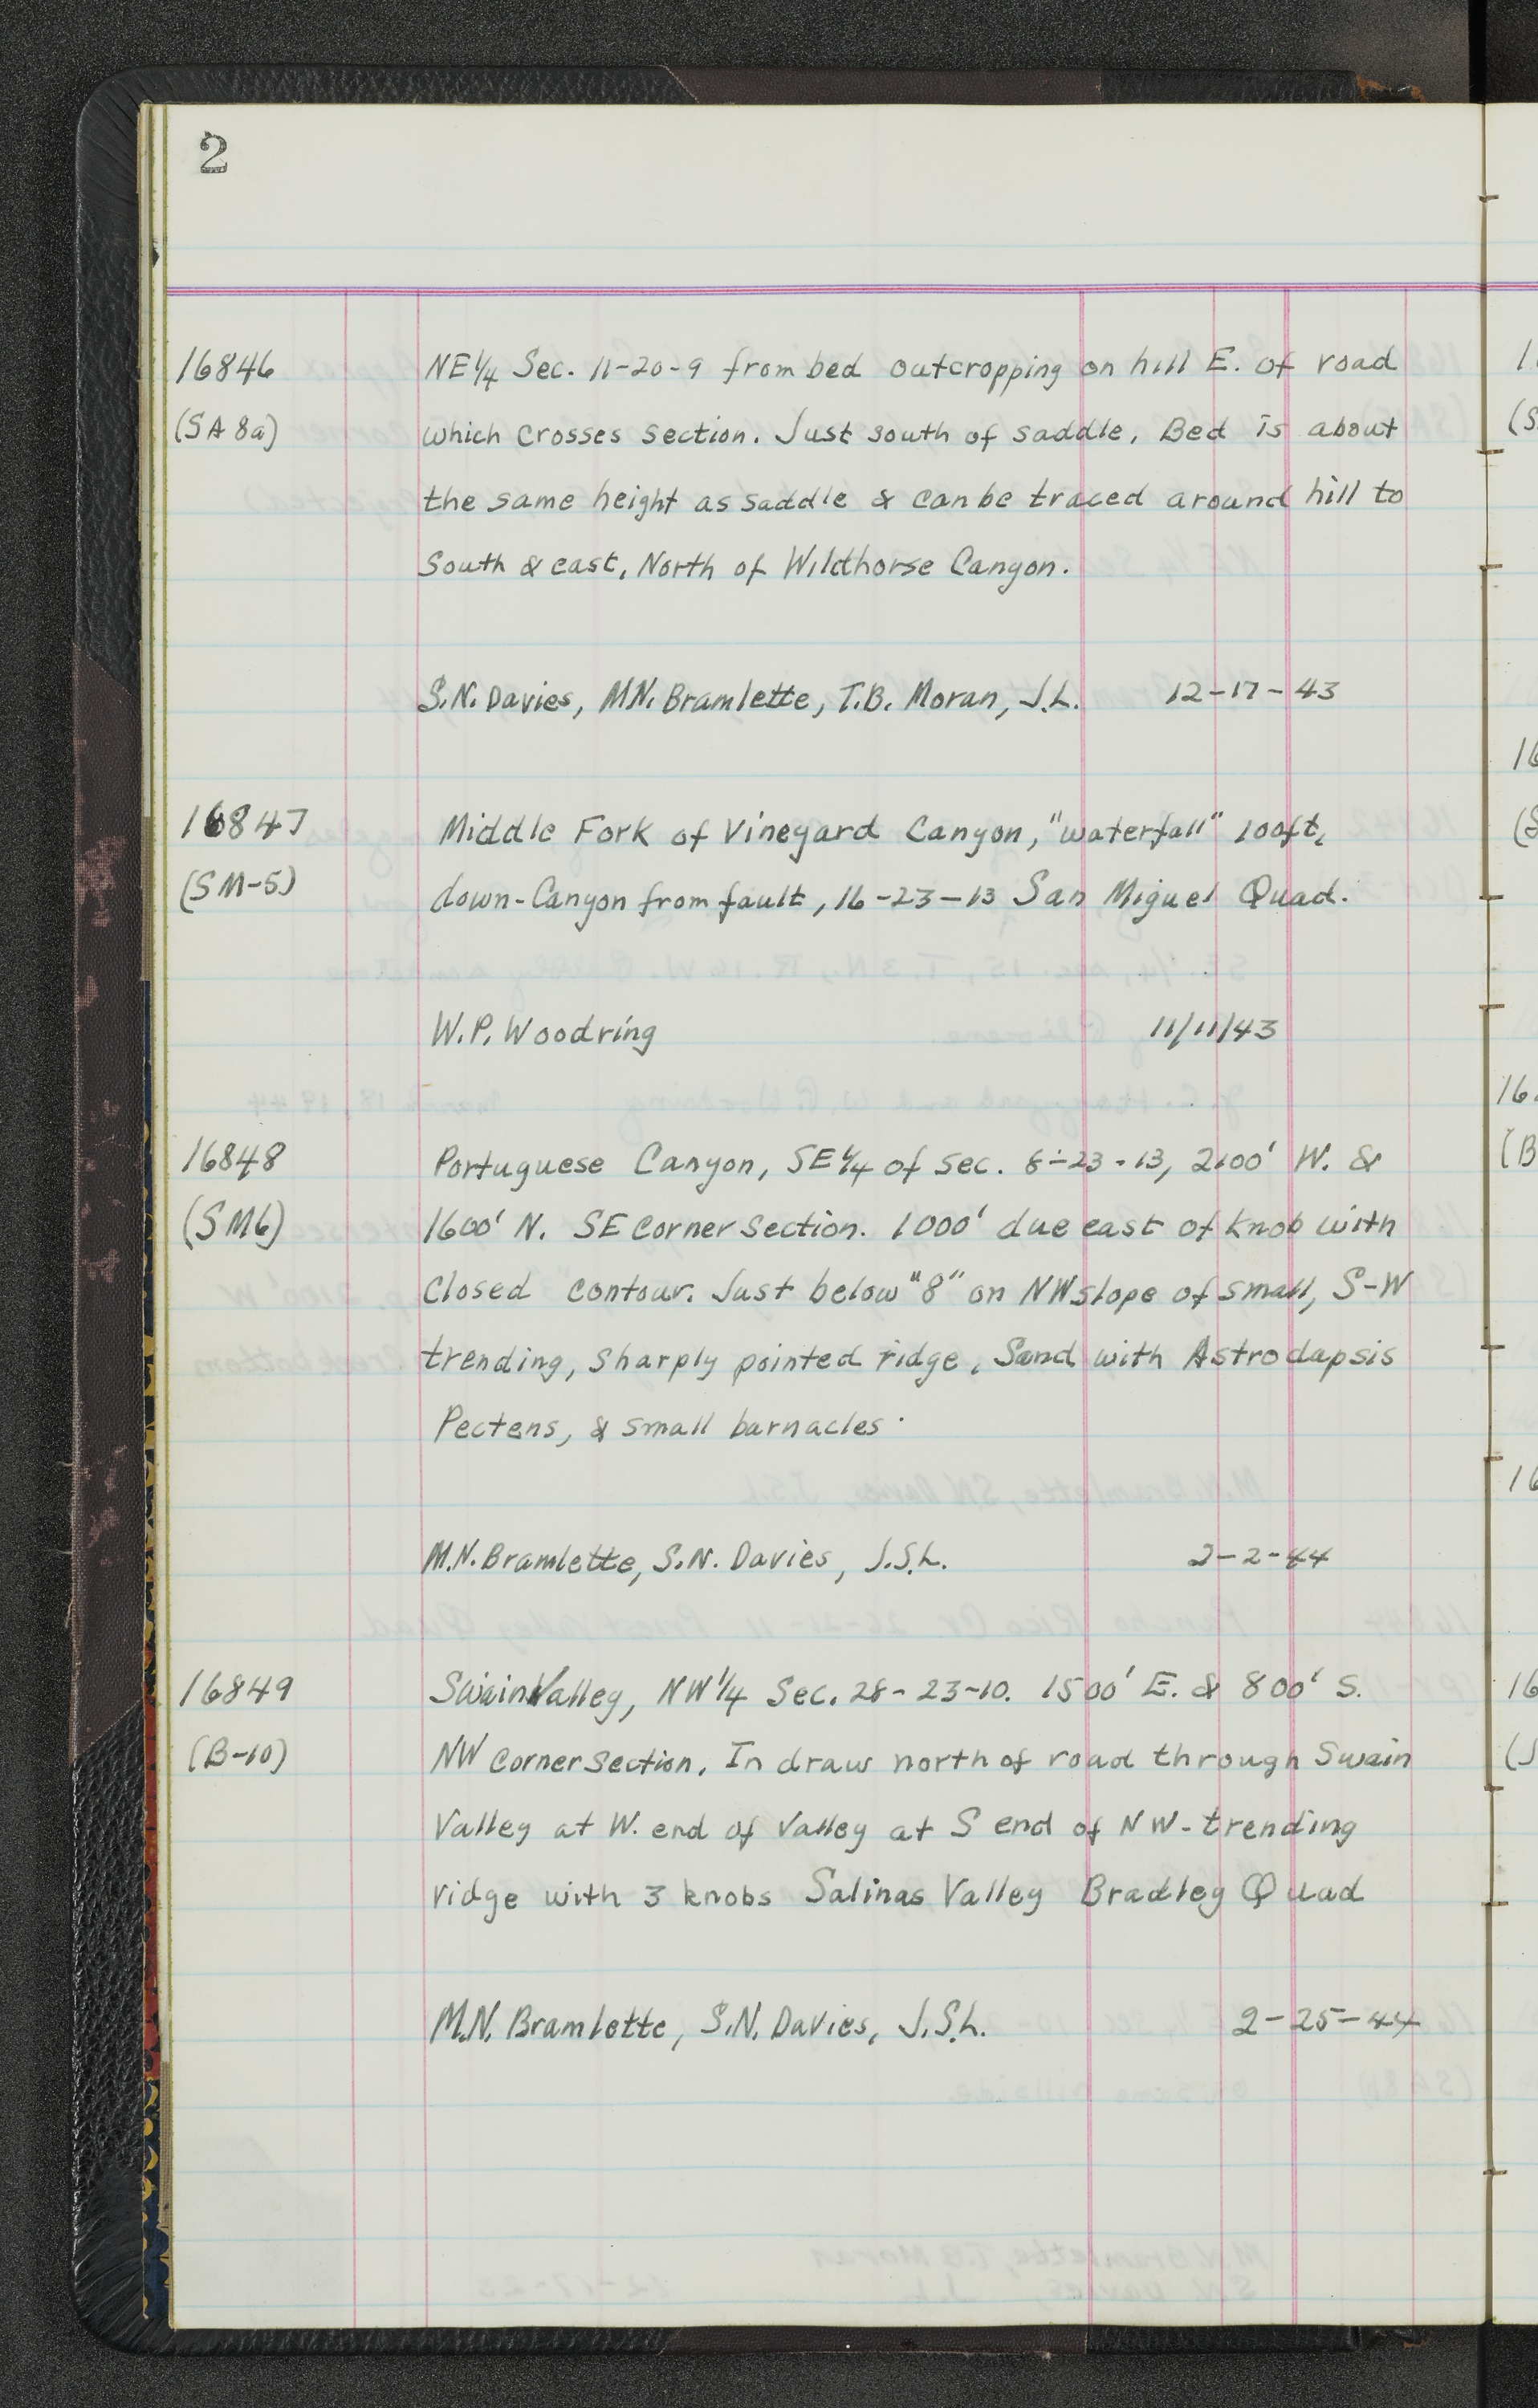 2
16846 NE 1/4 Sec. 11-20-9 from bed outcropping on hill E. of road
(SA 8a) which crosses section. Just south of saddle. Bed is about
the same height as saddle & can be traced around hill to
South & east, North of Wildhorse Canyon.
S.N. Davies, M.N. Bramlette, T.B. Moran, J.L. 12-17-43
16847 Middle Fork of Vineyard Canyon, "waterfall" 100ft.
(SM-5) down-Canyon from fault, 16-23-13 San Miguel Quad.
W.P. Woodring 11/11/43
16848 Portuguese Canyon, SE 1/4 of sec. 8-23-13, 2100' W. &
(SM6) 1600' N. SE Corner Section. 1000' due east of knob with
Closed contour. Just below "8" on NW slope of small, S-W
trending, sharply pointed ridge. Sand with Astrodapsis
Pectens, & small barnacles.
M.N. Bramlette, S.N. Davies, J.S.L. 2-2-44
16849 Swain Valley, NW 1/4 Sec. 28-23-10. 1500' E. & 800' S.
(B-10) NW Corner Section. In draw north of road through Swain
Valley at W. end of Valley at S end of NW-trending
ridge with 3 knobs Salinas Valley Bradley Quad
M.N. Bramlette, S.N. Davies, J.S.L. 2-25-44